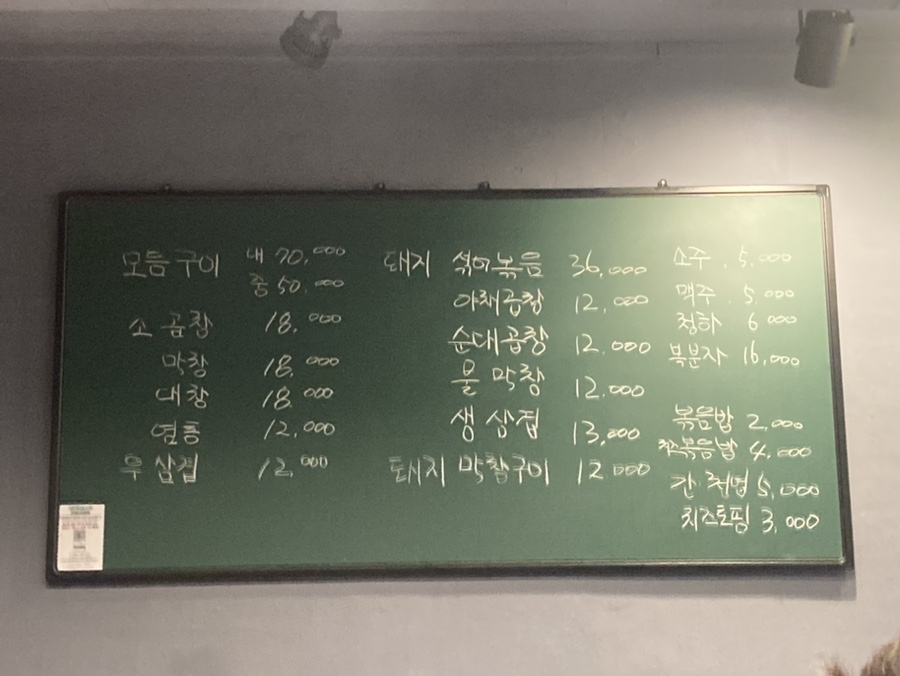 모듬구이 대 70,000
중 50,000
소 곱창 18,000
막창 18,000
대창 18,000
염통 12,000
우삼겹 12,000
돼지 섞어볶음 36,000
야채곱창 12,000
순대곱창 12,000
불 막창 12,000
생 삼겹 13,000
돼지 막창구이 12,000
소주 5,000
맥주 5,000
청하 6,000
복분자 16,000
볶음밥 2,000
치즈볶음밥 4,000
간 천엽 5,000
치즈토핑 3,000